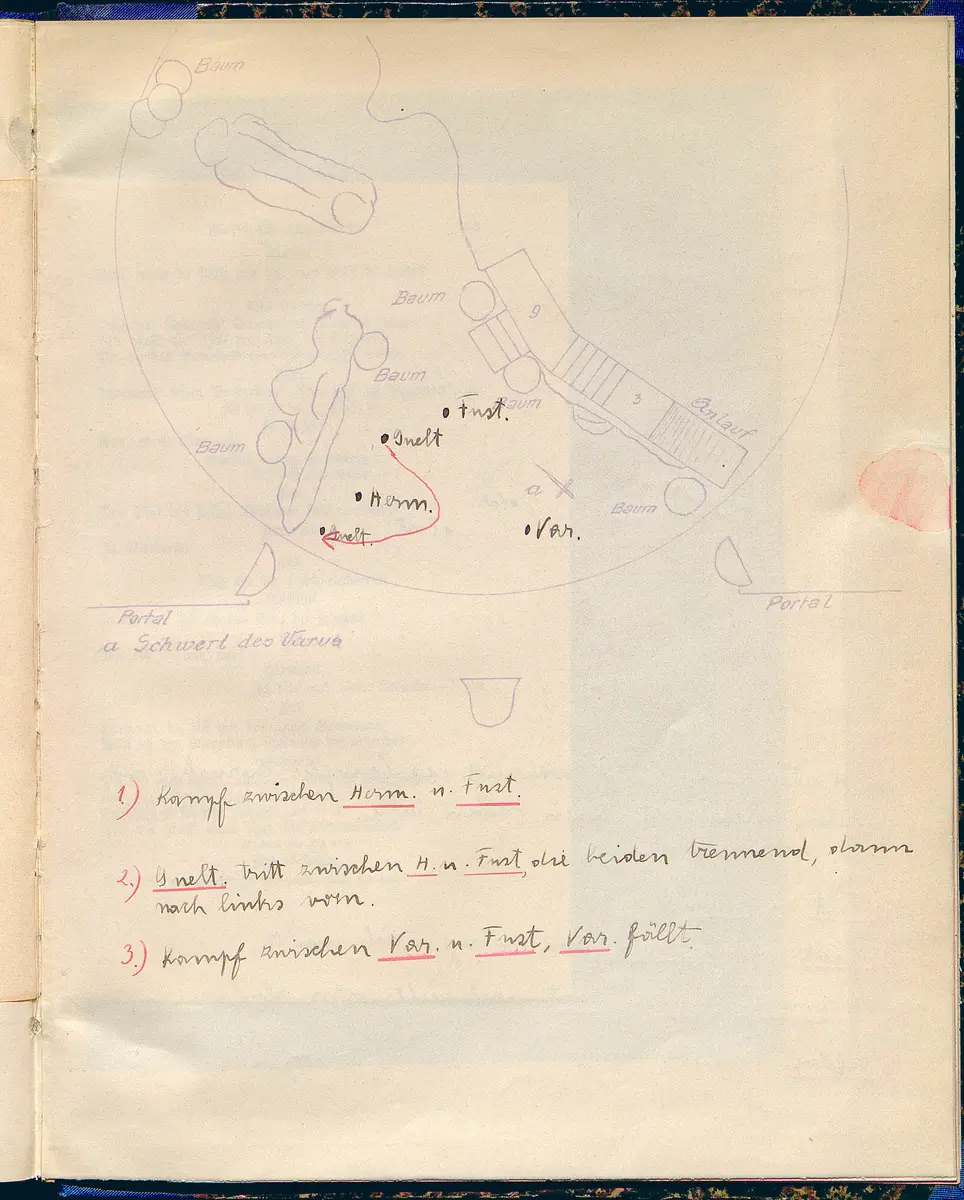 Baum
Baum
9
Baum
Baum
3
Einlauf
Fust.
Guelt
Baum
Herm.
a
Baum
Guelt.
Var.
Portal
Portal
a Schwert des Varus
1.) Kampf zwischen Herm. u. Fust.
2.) Guelt. tritt zwischen H. u. Fust, die beiden trennend, dann
nach links vorn.
3.) Kampf zwischen Var. u. Fust, Var. fällt.